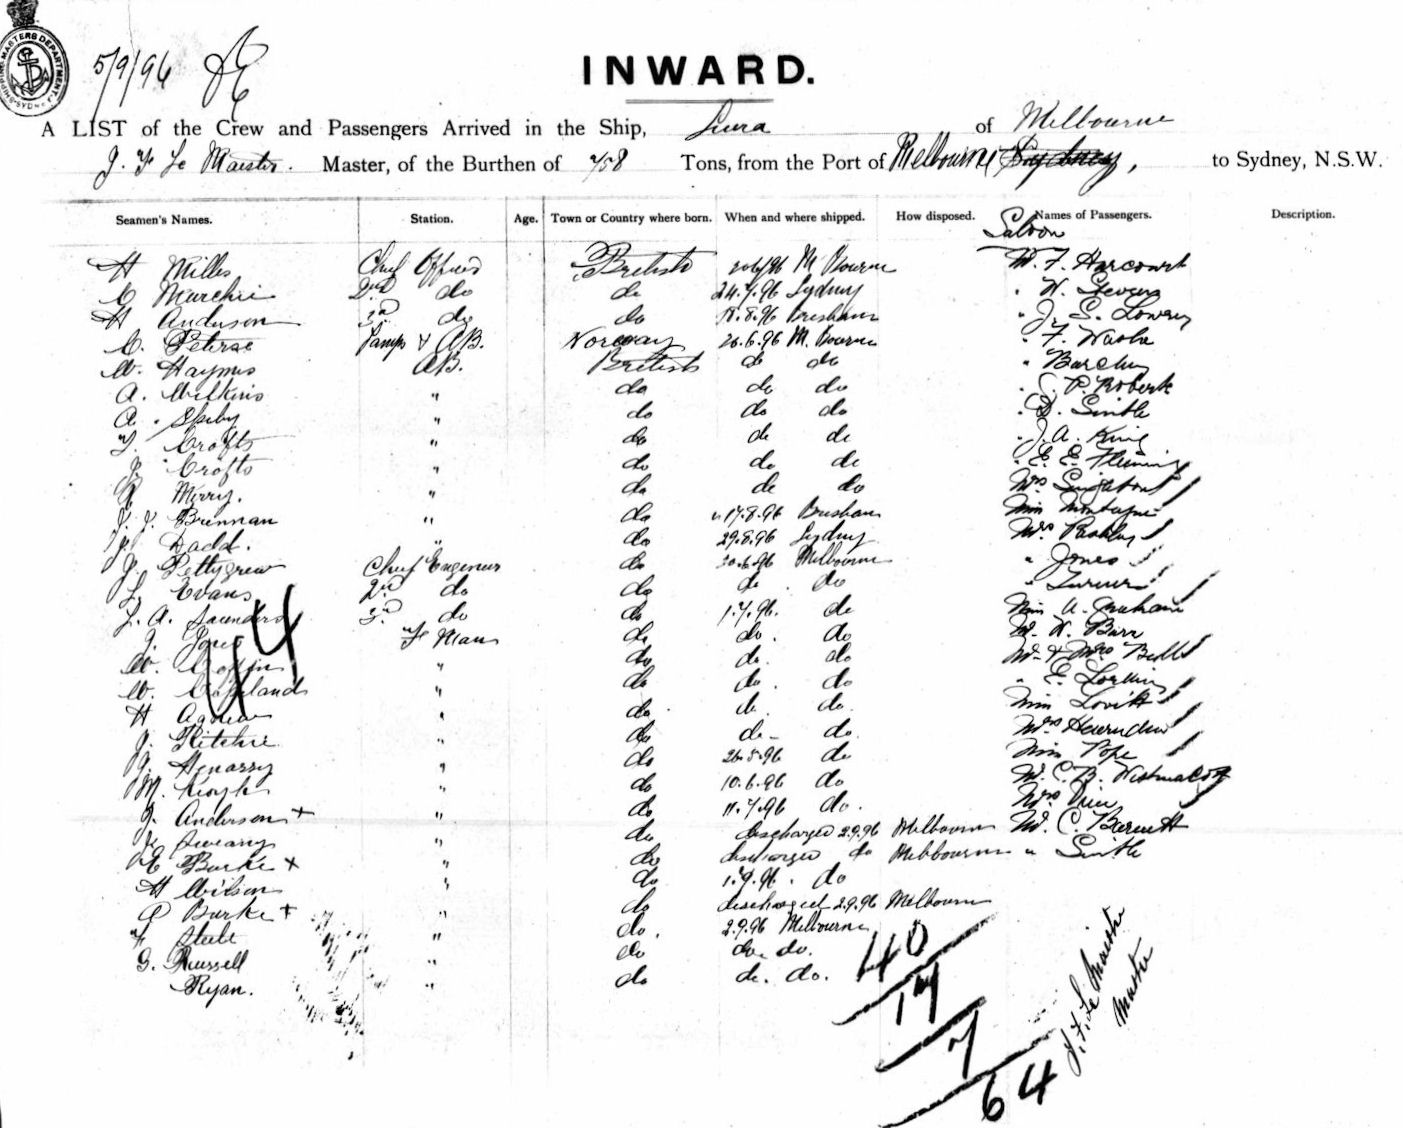 SHIPPING MASTERS DEPARTMENT SYDNEY
5/9/96
INWARD.
A LIST of the Crew and Passengers Arrived in the Ship, of Melbourne
J. F. Le Maistre. Master, of the Burthen of 758 Tons, from the Port of Melbourne Sydney, to Sydney, N.S.W.
Seamen's Names. Station. Age. Town or Country where born. When and where shipped. How disposed. Names of Passengers. Description.
Saloon
H Mills Chief Officer British M Bourne Mr. F. Harcourt
C Murchie 2nd do do 24.7.96 Sydney " W. Stevens
H Anderson 3rd do do 18.8.96 Brisbane " J. S. Lowery
C. Lamps & AB. Norway 26.6.96 M. Bourne " F.
W. Haymes AB. British do do "
A. Wilkins " do do do " P. Roberts
A. " do do do " D. Smith
T. Crofts " do do do " J. A. King
J. Crofts " do do do " E. E. Fleming
Merry. " do do do Mrs Singleton
J. J. Brennan " do " 17.8.96 Brisbane Miss Montague
J. Dadd. " do 29.8.96 Sydney Mrs
J. Pettygrew Chief Engineer do Melbourne " Jones
L. Evans 2nd do do do do "
L. A. Saunders 3rd do do 1.7.96. do Miss A. Graham
J. Jones F Man do do. do Mr. W. Barr
W. " do do. do Mr & Mrs Bell
W. Copeland " do do. do " E.
H Agnew " do do. do. Miss Lovitt
J. Ritchie " do do do. Mrs
J. " do 26.8.96 do Miss Pope
M. Keogh " do 10.6.96 do Mr. C. B.
J. Anderson + " do 11.7.96 do. Mrs
J. Sweany " do discharged 2.9.96 Melbourne Mr. C. Barnett
E Burke + " do discharged do Melbourne " Smith
H Wilson " do 1.9.96. do
A Burke + " do discharged 2.9.96 Melbourne
F Steele " do. 2.9.96 Melbourne
G. Russell " do do. do.
Ryan. " do do. do.
44
40
17
7
64
J. F. Le Maistre
Master